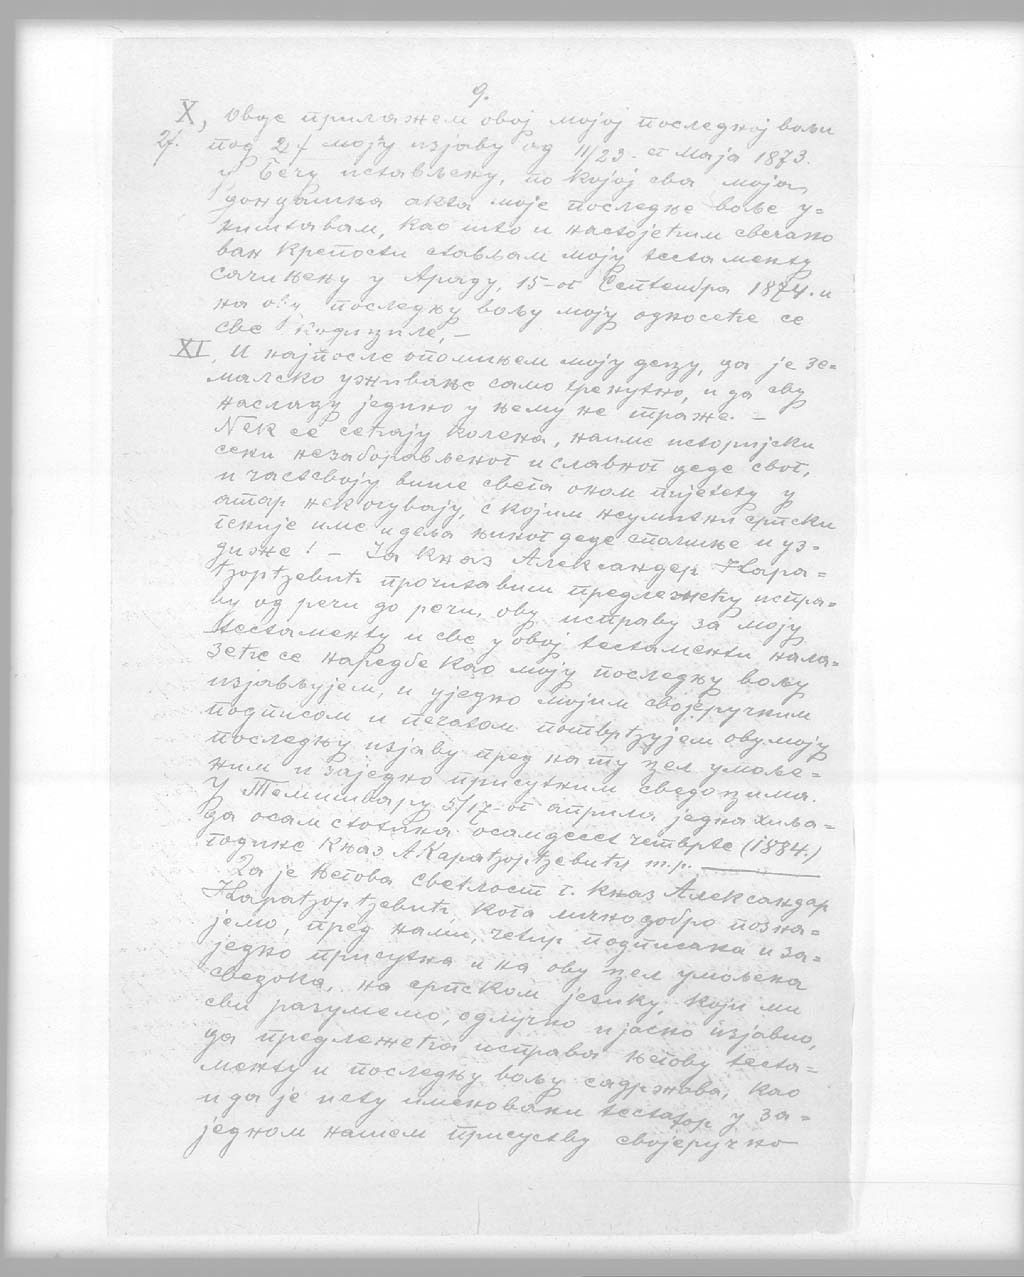 9.
X, Овде прилажем овој мојој последној вољи
2/. под 2/ моју изјаву од 11/23-ег Маја 1873.
у Бечу истављену, по којој сва моја
дондашња акта моје последње воље у-
ништавам, као што и настојећим свечано
ван крепости стављам моју тестаменту
сачињену у Араду, 15-ог Септембра 1874. и
на ову последњу вољу моју односеће се
све кодициле, –
XI, И најпосле опомињем моју децу, да је зе-
маљско уживање само тренутно, и да сву
насладу једино у њему не траже. –
Нек се сећају колена, наиме историјски
сени незаборављеног и славног деде свог,
и част своју више света оном пијетету у
аманет нек чувају, с којим неумитни српски
геније име и дела њиног деде спомиње и уз-
диже! – Ја Кназ Александер Кара-
ђорђевић прочитавши предлежећу испра-
ву од речи до речи, ову исправу за моју
тестаменту и све у овој тестаменти нала-
зеће се наредбе као моју последњу вољу
изјављујем, и уједно мојим својеручним
подписом и печатом потврђујем ову моју
последњу изјаву пред на ту цел умоље-
ним и заједно присутним сведоцима.
У Темишвару 5/17-ог априла једна хиља-
да осам стотина осамдесет четврте (1884.)
године Књаз А Карађорђевић m.p.
Да је Његова Светлост г. Кназ Александар
Карађорђевић, кога лично добро позна-
јемо, пред нами, четир подписана и за-
једно присутна и на ову цел умољена
сведока, на српском језику, који ми
сви разумемо, одлучно и јасно изјавио,
да предлежећа исправа његову теста-
менту и последњу вољу садржава, као
и да је исту именовани тестатор у за-
једном нашем присуству својеручно